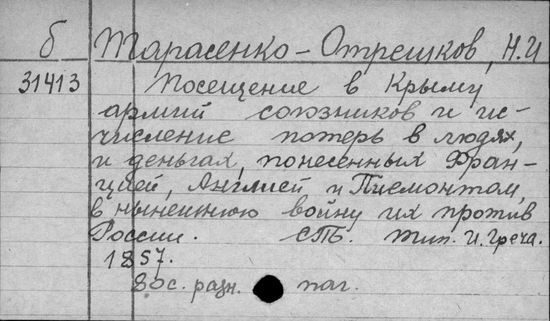 б Тарасенко-Отрешков, Н.И
31413 Посещение в Крыму
армий союзников и ис-
числение потерь в людях,
и деньгах, понесенных Фран-
цией, Англией и Пиемонтом,
в нынешнюю войну их против
России. СПБ. тип. И. Греча.
1857.
80с. разн. паг.